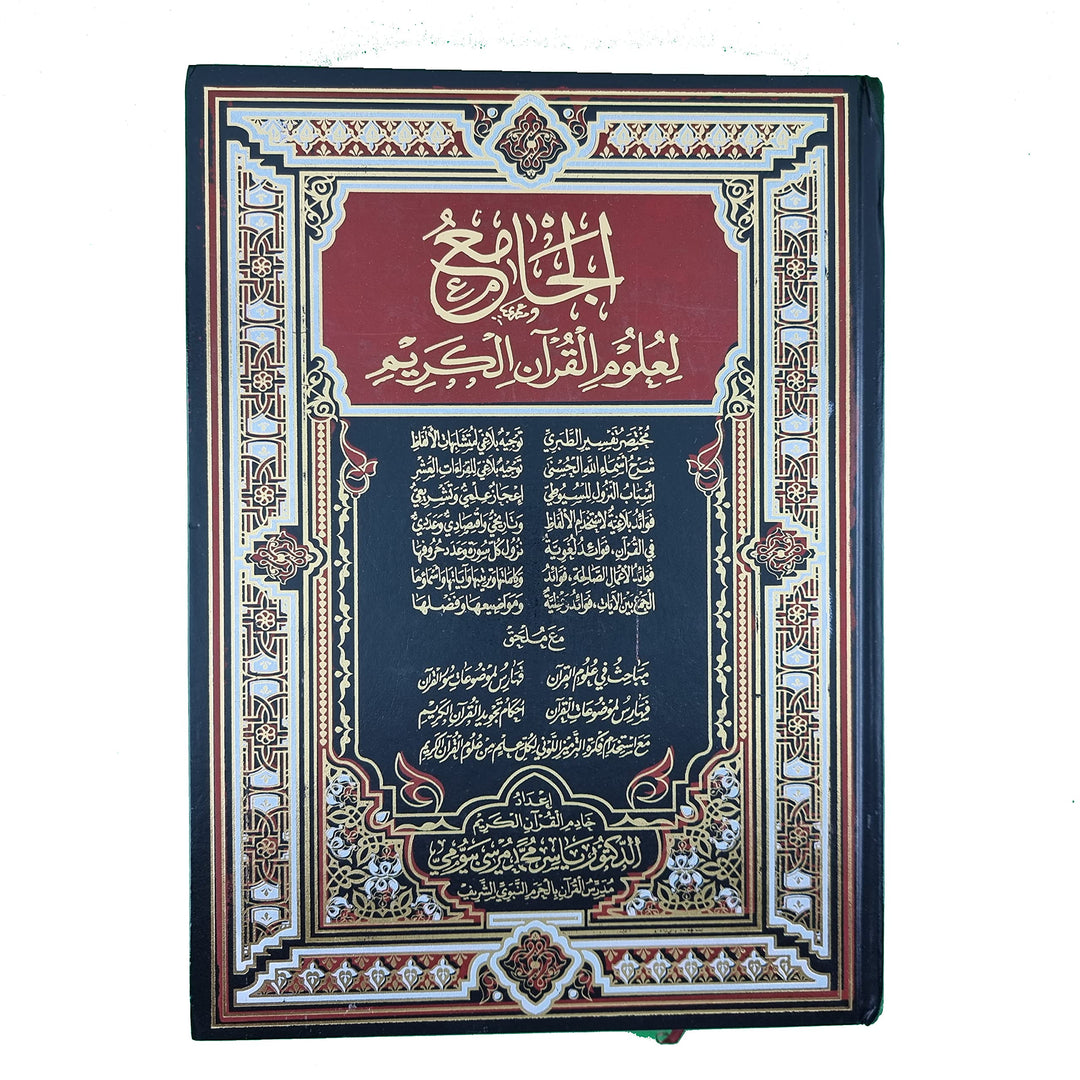 الجَامِعُ
لِعُلُومِ الْقُرْآنِ الْكَرِيْمِ
مُخْتَصَرُ تَفْسِيرِ الطَّبَرِيّ
شَرْحُ أَسْمَاءِ اللهِ الحُسْنَى
أَسْبَابُ النُّزُولِ لِلسُّيُوطِيّ
فَوَائِدُ بَلَاغِيَّةٌ لِاسْتِخْدَامِ الأَلْفَاظِ
فِي القُرْآنِ، فَوَائِدُ لُغَوِيَّةٌ
فَوَائِدُ الأَعْمَالِ الصَّالِحَةِ، فَوَائِدُ
الجَمْعِ بَيْنَ الآيَاتِ، فَوَائِدُ
تَوْجِيْهٌ بَلَاغِيّ لِمُتَشَابِهَاتِ الأَلْفَاظِ
تَوْجِيْهٌ بَلَاغِيّ لِلْقِرَاءَاتِ العَشْرِ
إِعْجَازٌ عِلْمِيٌّ وَتَشْرِيْعِيٌّ
وَتَارِيْخِيٌّ وَاقْتِصَادِيٌّ وَعَدَدِيٌّ
نُزُولُ كُلِّ سُوْرَةٍ وَعَدَدُ حُرُوفِهَا
وَكَلِمَاتِهَا وَتَرْتِيْبِهَا وَآيَاتِهَا وَأَسْمَاؤُهَا
وَمَوَاضِيعُهَا وَفَضْلُهَا
مَعَ مُلْحَق
مَبَاحِثُ فِي عُلُومِ القُرْآنِ
فَهَارِسُ لِمَوْضُوعَاتِ سُوَرِ القُرْآنِ
فَهَارِسُ لِمَوْضُوعَاتِ القُرْآنِ
أَحْكَامُ تَجْوِيْدِ القُرْآنِ الكَرِيْمِ
مَعَ اسْتِخْدَامِ فِكْرَةِ التَّرْمِيْزِ اللَّوْنِي لِكُلِّ عِلْمٍ مِنْ عُلُومِ القُرْآنِ الكَرِيْمِ
إِعْدَادُ
خَادِمِ القُرْآنِ الكَرِيْمِ
الدُّكْتُور يَاسِر مُحَمَّد مُرْسِي بَيُّومِي
مُدَرِّسُ القُرْآنِ بِالحَرَمِ النَّبَوِيِّ الشَّرِيْف